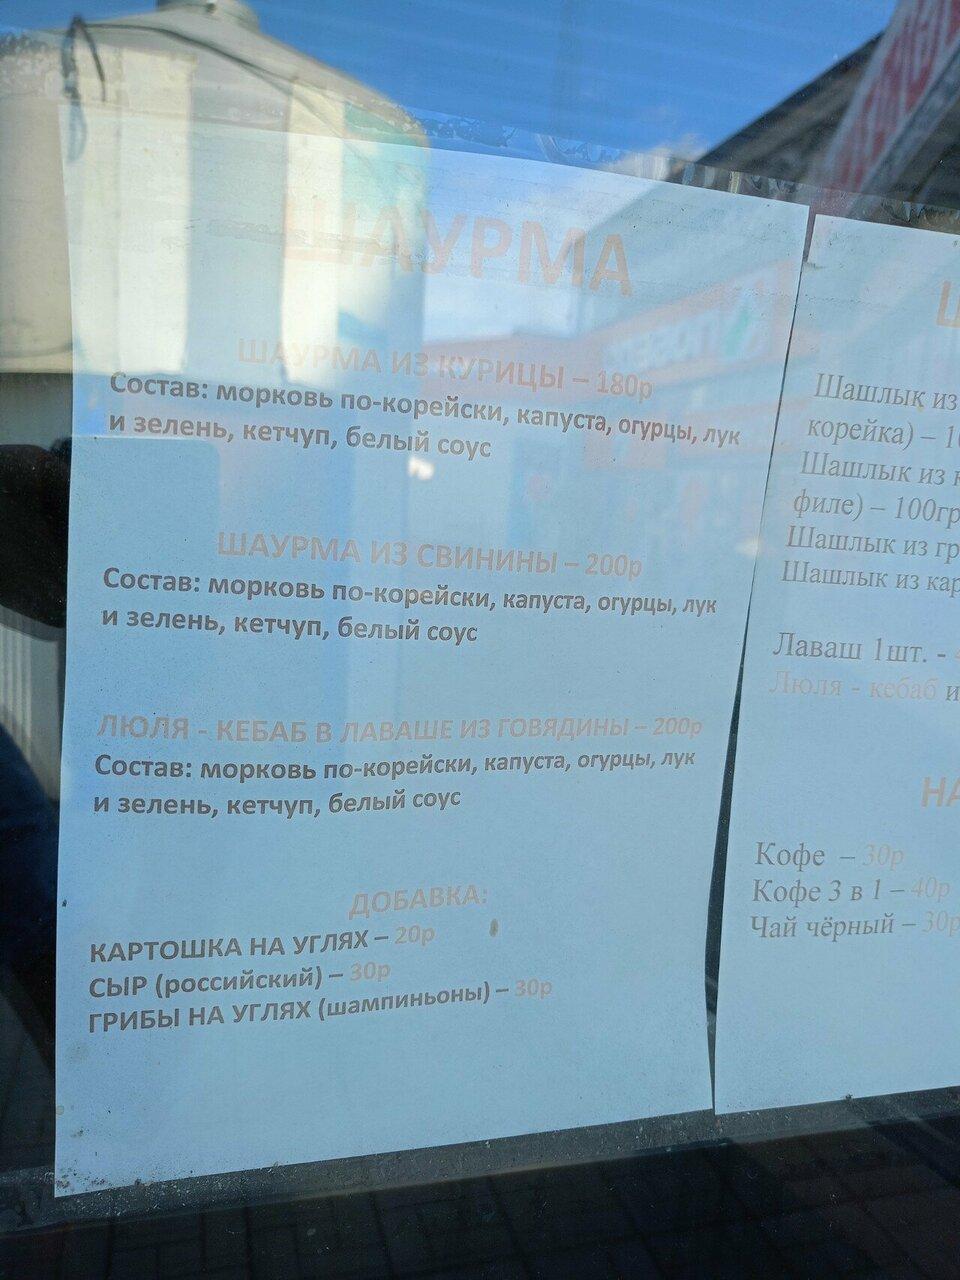 ШАУРМА
ШАУРМА ИЗ КУРИЦЫ – 180р
Состав: морковь по-корейски, капуста, огурцы, лук
и зелень, кетчуп, белый соус
ШАУРМА ИЗ СВИНИНЫ – 200р
Состав: морковь по-корейски, капуста, огурцы, лук
и зелень, кетчуп, белый соус
ЛЮЛЯ - КЕБАБ В ЛАВАШЕ ИЗ ГОВЯДИНЫ – 200р
Состав: морковь по-корейски, капуста, огурцы, лук
и зелень, кетчуп, белый соус
ДОБАВКА:
КАРТОШКА НА УГЛЯХ – 20р
СЫР (российский) – 30р
ГРИБЫ НА УГЛЯХ (шампиньоны) – 30р
Шашлык из
корейка) –
Шашлык из
филе) – 100гр
Шашлык из
Шашлык из
Лаваш 1шт. -
Люля - кебаб
Кофе – 30р
Кофе 3 в 1 – 40р
Чай чёрный – 30р